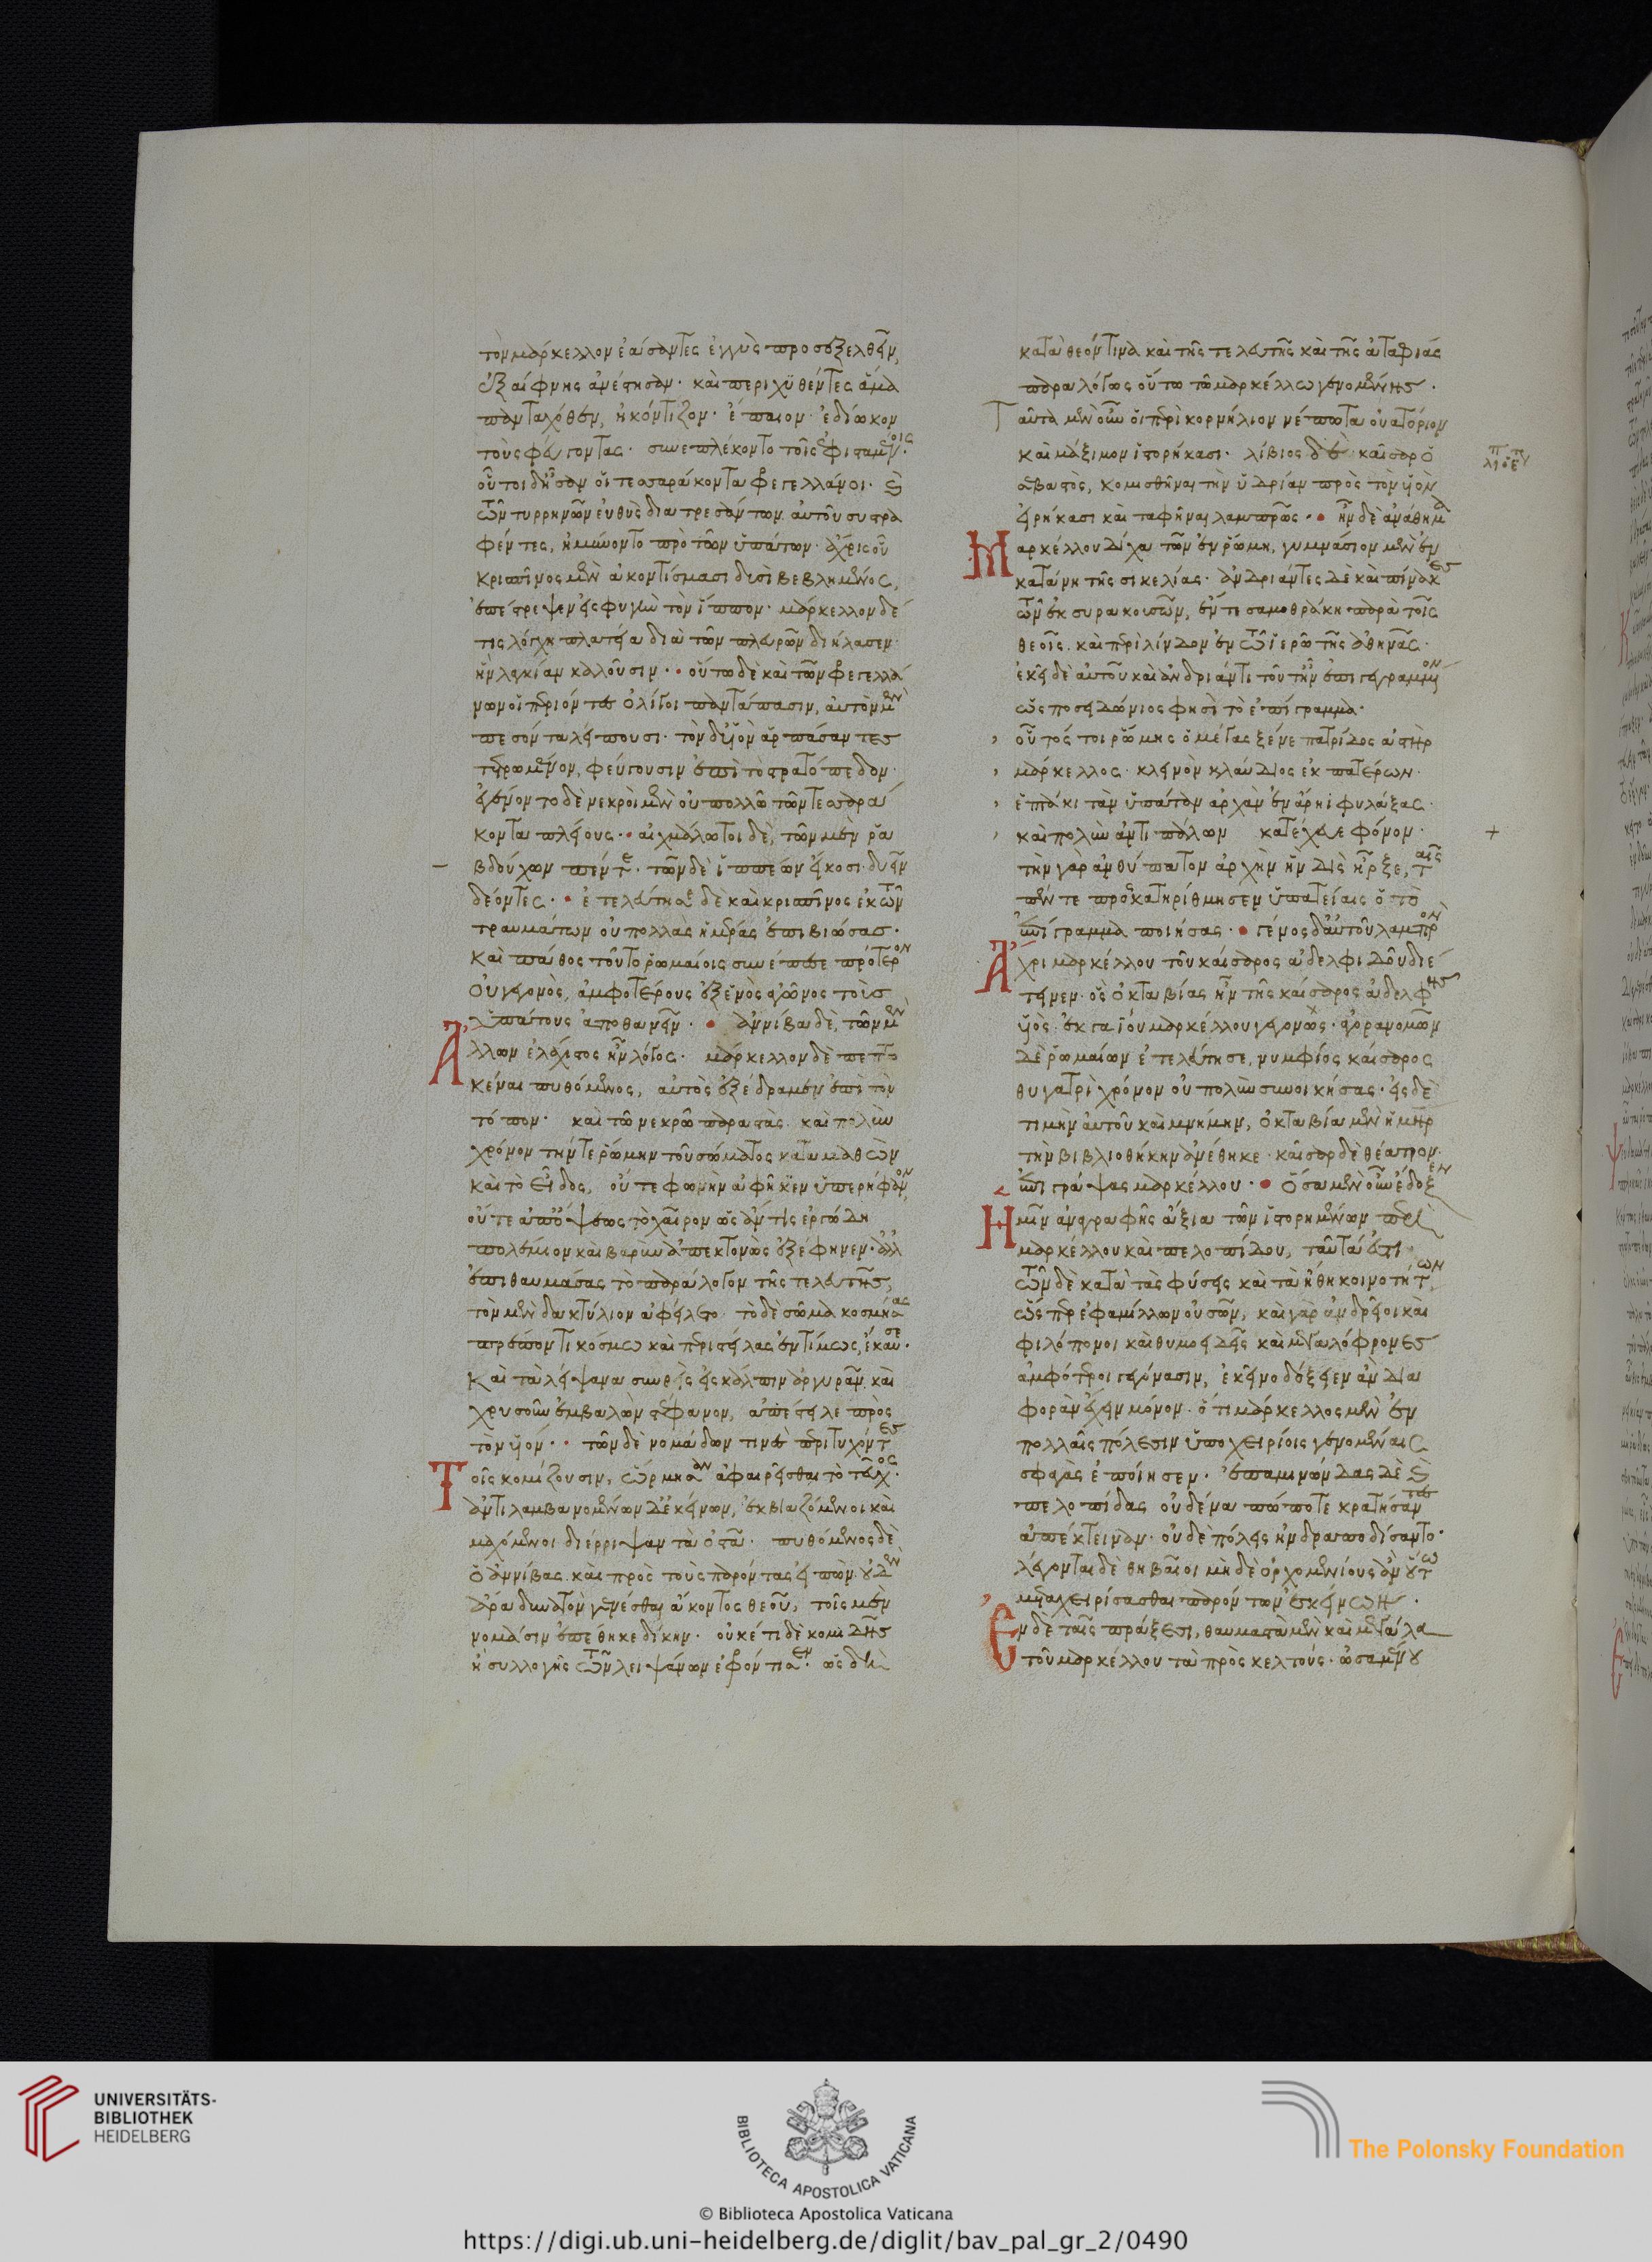 τὸν μάρκελλον ἐάσαντες ἐγγὺς προσεξελθεῖν,
ἐξαίφνης ἀνέστησαν· καὶ περιχυθέντες ἅμα
πανταχόθεν, ἠκόντιζον· ἔπαιον· ἐδίωκον
τοὺς φεύγοντας· συνεπλέκοντο τοῖς ὑφισταμένοις·
οὗτοι δ' ἦσαν οἱ τεσσαράκοντα φεγελλάνοι· καὶ
τῶν τυρρηνῶν εὐθὺς διατρεσάντων αὐτοῦ συστρα
φέντες, ἠμύνοντο πρὸ τῶν ὑπάτων· ἄχρις οὗ
κρισπῖνος μὲν ἀκοντίσμασι δυσὶ βεβλημένος,
ἐπέστρεψεν εἰς φυγὴν τὸν ἵππον· μάρκελλον δέ
τις λόγχῃ πλατείᾳ διὰ τῶν πλευρῶν διήλασεν·
ἣν λαγκίαν καλοῦσιν· οὕτω δὲ καὶ τῶν φεγελλα
νῶν οἱ περιόντες ὀλίγοι παντάπασιν, αὐτὸν μὲν
πεσόντα λείπουσι· τὸν δ' υἱὸν ἁρπάσαντες
τετρωμένον, φεύγουσιν ἐπὶ τὸ στρατόπεδον·
ἐγένοντο δὲ νεκροὶ μὲν οὐ πολλῷ τῶν τεσσαρά
κοντα πλείους· αἰχμάλωτοι δὲ, τῶν μὲν ῥα
βδούχων πέντε· τῶν δὲ ἱππέων εἴκοσι δυεῖν
δέοντες· ἐτελεύτησε δὲ καὶ κρισπῖνος ἐκ τῶν
τραυμάτων οὐ πολλὰς ἡμέρας ἐπιβιώσας·
καὶ πάθος τοῦτο ῥωμαίοις συνέπεσε πρότερον
οὐ γεγονός, ἀμφοτέρους ἐξ ἑνὸς ἀγῶνος τοὺς
ὑπάτους ἀποθανεῖν· ἀννίβᾳ δὲ, τῶν μὲν
Ἄλλων ἐλάχιστος ἦν λόγος· μάρκελλον δὲ πεπτω
κέναι πυθόμενος, αὐτὸς ἐξέδραμεν ἐπὶ τὸν
τόπον· καὶ τῷ νεκρῷ παραστὰς καὶ πολὺν
χρόνον τήν τε ῥώμην τοῦ σώματος καταμαθὼν
καὶ τὸ εἶδος, οὔτε φωνὴν ἀφῆκεν ὑπερήφανον,
οὔτε ἀπ' ὄψεως τὸ χαῖρον ὡς ἄν τις ἐργώδη
πολέμιον καὶ βαρὺν ἀπεκτονὼς ἐξέφηνεν· ἀλλ'
ἐπιθαυμάσας τὸ παράλογον τῆς τελευτῆς,
τὸν μὲν δακτύλιον ἀφείλετο· τὸ δὲ σῶμα κοσμήσας
πρέποντι κόσμῳ καὶ περιστείλας ἐντίμως, ἔκαυσε·
Καὶ τὰ λείψανα συνθεὶς εἰς κάλπιν ἀργυρᾶν καὶ
χρυσοῦν ἐμβαλὼν στέφανον, ἀπέστειλε πρὸς
τὸν υἱόν· τῶν δὲ νομάδων τινὲς περιτυχόντες
Τοῖς κομίζουσιν, ὥρμησαν ἀφαιρεῖσθαι τὸ τεῦχος·
ἀντιλαμβανομένων δ' ἐκείνων, ἐκβιαζόμενοι καὶ
μαχόμενοι διέρριψαν τὰ ὀστᾶ· πυθόμενος δὲ
ὁ ἀννίβας καὶ πρὸς τοὺς παρόντας εἰπὼν οὐδὲν
ἄρα δυνατὸν γενέσθαι ἄκοντος θεοῦ, τοῖς μὲν
νομάσιν ἐπέθηκε δίκην· οὐκέτι δὲ κομιδῆς
ἢ συλλογῆς τῶν λειψάνων ἐφρόντισεν· ὡς δὴ
κατὰ θεόν τινα καὶ τῆς τελευτῆς καὶ τῆς ἀταφίας
παραλόγως οὕτω τῷ μαρκέλλῳ γενομένης·
Ταῦτα μὲν οὖν οἱ περὶ κορνήλιον νέπωτα οὐατόριον
καὶ μάξιμον ἱστορήκασι· λίβιος δὲ καῖσαρ ὁ
σεβαστὸς, κομισθῆναι τὴν ὑδρίαν πρὸς τὸν υἱὸν
εἰρήκασι καὶ ταφῆναι λαμπρῶς· ἦν δὲ ἀνάθημα
Μαρκέλλου δίχα τῶν ἐν ῥώμῃ, γυμνάσιον μὲν ἐν
κατάνῃ τῆς σικελίας· ἀνδριάντες δὲ καὶ πίνακες
τῶν ἐκ συρακουσῶν, ἔν τε σαμοθράκῃ παρὰ τοῖς
θεοῖς καὶ περὶ λίνδον ἐν τῷ ἱερῷ τῆς ἀθηνᾶς·
ἐκεῖ δὲ αὐτοῦ καὶ ἀνδριάντι τοῦτ' ἦν ἐπιγεγραμμένον
ὡς ποσειδώνιος φησὶ τὸ ἐπίγραμμα·
οὗτός τοι ῥώμης ὁ μέγας ξεῖνε πατρίδος ἀστὴρ
μάρκελλος κλεινῶν κλαύδιος ἐκ πατέρων·
ἑπτάκι τὰν ὑπάταν ἀρχὰν ἐν ἄρηι φυλάξας·
καὶ πολὺν ἀντιπάλων κατέχευε φόνον·
τὴν γὰρ ἀνθύπατον ἀρχὴν ἣν δὶς ἦρξε, ταῖς
πέντε προσκατηρίθμησεν ὑπατείαις ὁ τὸ
ἐπίγραμμα ποιήσας· γένος δ' αὐτοῦ λαμπρὸν
Ἄχρι μαρκέλλου τοῦ καίσαρος ἀδελφιδοῦ διέ
τεινεν· ὃς ὀκταβίας ἦν τῆς καίσαρος ἀδελφῆς
υἱὸς ἐκ γαΐου μαρκέλλου γεγονώς· ἀγορανομῶν
δὲ ῥωμαίων ἐτελεύτησε, νυμφίος καίσαρος
θυγατρὶ χρόνον οὐ πολὺν συνοικήσας· εἰς δὲ
τιμὴν αὐτοῦ καὶ μνήμην, ὀκταβία μὲν ἡ μήτηρ
τὴν βιβλιοθήκην ἀνέθηκε· καῖσαρ δὲ θέατρον
ἐπιγράψας μαρκέλλου· Ὅσα μὲν οὖν ἔδοξεν
Ἡμῖν ἀναγραφῆς ἄξια τῶν ἱστορημένων περὶ
μαρκέλλου καὶ πελοπίδου, ταῦτά ἐστι·
τῶν δὲ κατὰ τὰς φύσεις καὶ τὰ ἤθη κοινοτήτων,
ὥσπερ ἐφαμίλλων οὐσῶν, καὶ γὰρ ἀνδρεῖοι καὶ
φιλόπονοι καὶ θυμοειδεῖς καὶ μεγαλόφρονες
ἀμφότεροι γεγόνασιν, ἐκεῖνο δόξειεν ἂν δια
φορὰν ἔχειν μόνον· ὅτι μάρκελλος μὲν ἐν
πολλαῖς πόλεσιν ὑποχειρίοις γενομέναις
σφαγὰς ἐποίησεν· ἐπαμινώνδας δὲ καὶ
πελοπίδας οὐδένα πώποτε κρατήσαντες
ἀπέκτειναν· οὐδὲ πόλεις ἠνδραποδίσαντο·
λέγονται δὲ θηβαῖοι μηδὲ ὀρχομενίους ἂν οὕτω
μεταχειρίσασθαι παρόντων ἐκείνων·
Ἐν δὲ ταῖς πράξεσι, θαυμαστὰ μὲν καὶ μεγάλα
τοῦ μαρκέλλου τὰ πρὸς κελτούς· ὠσαμένου
UNIVERSITÄTS-
BIBLIOTHEK
HEIDELBERG
BIBLIOTECA APOSTOLICA VATICANA
The Polonsky Foundation
© Biblioteca Apostolica Vaticana
https://digi.ub.uni-heidelberg.de/diglit/bav_pal_gr_2/0490